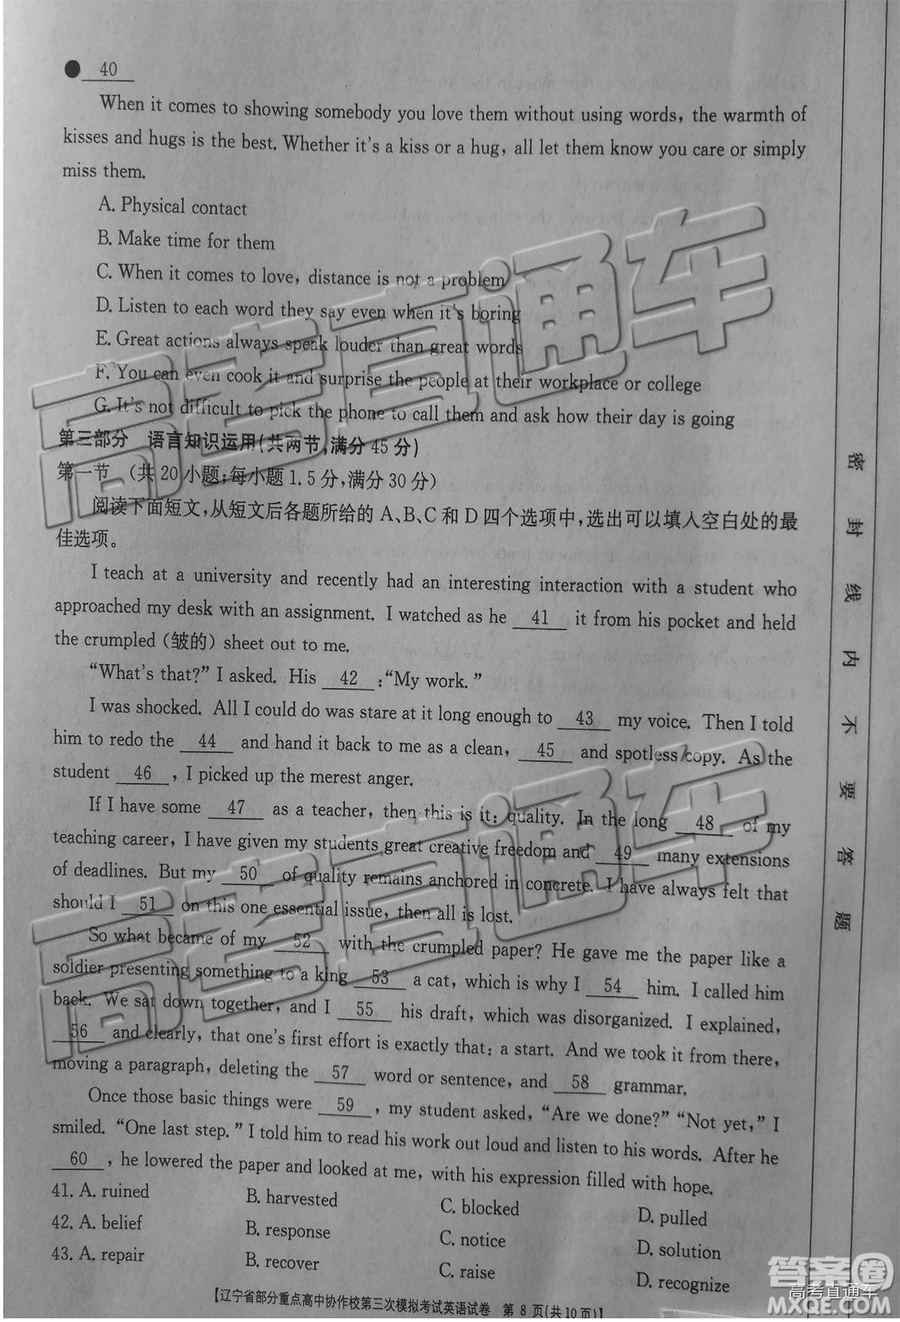 ● 40
When it comes to showing somebody you love them without using words, the warmth of
kisses and hugs is the best. Whether it's a kiss or a hug, all let them know you care or simply
miss them.
A. Physical contact
B. Make time for them
C. When it comes to love, distance is not a problem
D. Listen to each word they say even when it's boring
E. Great actions always speak louder than great words
F. You can even cook it and surprise the people at their workplace or college
G. It's not difficult to pick the phone to call them and ask how their day is going
第三部分 语言知识运用(共两节,满分 45 分)
第一节 (共 20 小题;每小题 1.5 分,满分 30 分)
阅读下面短文,从短文后各题所给的 A、B、C 和 D 四个选项中,选出可以填入空白处的最
佳选项。
I teach at a university and recently had an interesting interaction with a student who
approached my desk with an assignment. I watched as he 41 it from his pocket and held
the crumpled (皱的) sheet out to me.
“What's that?” I asked. His 42 :“My work.”
I was shocked. All I could do was stare at it long enough to 43 my voice. Then I told
him to redo the 44 and hand it back to me as a clean, 45 and spotless copy. As the
student 46 , I picked up the merest anger.
If I have some 47 as a teacher, then this is it: quality. In the long 48 of my
teaching career, I have given my students great creative freedom and 49 many extensions
of deadlines. But my 50 of quality remains anchored in concrete. I have always felt that
should I 51 on this one essential issue, then all is lost.
So what became of my 52 with the crumpled paper? He gave me the paper like a
soldier presenting something to a king 53 a cat, which is why I 54 him. I called him
back. We sat down together, and I 55 his draft, which was disorganized. I explained,
56 and clearly, that one's first effort is exactly that: a start. And we took it from there,
moving a paragraph, deleting the 57 word or sentence, and 58 grammar.
Once those basic things were 59 , my student asked, “Are we done?” “Not yet,” I
smiled. “One last step.” I told him to read his work out loud and listen to his words. After he
60 , he lowered the paper and looked at me, with his expression filled with hope.
41. A. ruined B. harvested C. blocked D. pulled
42. A. belief B. response C. notice D. solution
43. A. repair B. recover C. raise D. recognize
【辽宁省部分重点高中协作校第三次模拟考试英语试卷 第 8 页(共 10 页)】
密封线内不要答题
高考直通车
高考直通车
答案圈
高考直通车
MXQE.COM